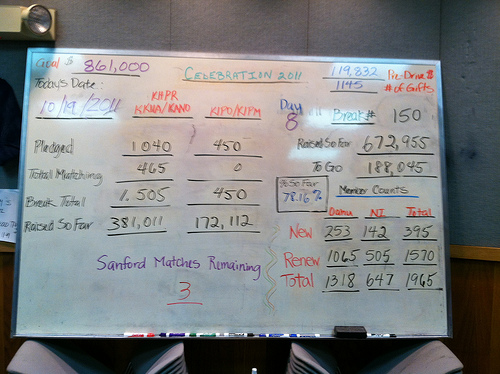 Goal $ 861,000
CELEBRATION 2011
119,832 Pre-Drive $
1145 # of Gifts
Today's Date:
10/19/2011
KHPR
KKUA/KANO
KIPO/KIPM
Day
8
Break# 150
Pledged 1040 450
Raised So Far 672,955
Total Matching 465 0
To Go 188,045
Break Total 1,505 450
% So Far
78.16%
Member Counts
Raised So Far 381,011 172,112
Oahu NI Total
New 253 142 395
Sanford Matches Remaining
3
Renew 1065 505 1570
Total 1318 647 1965